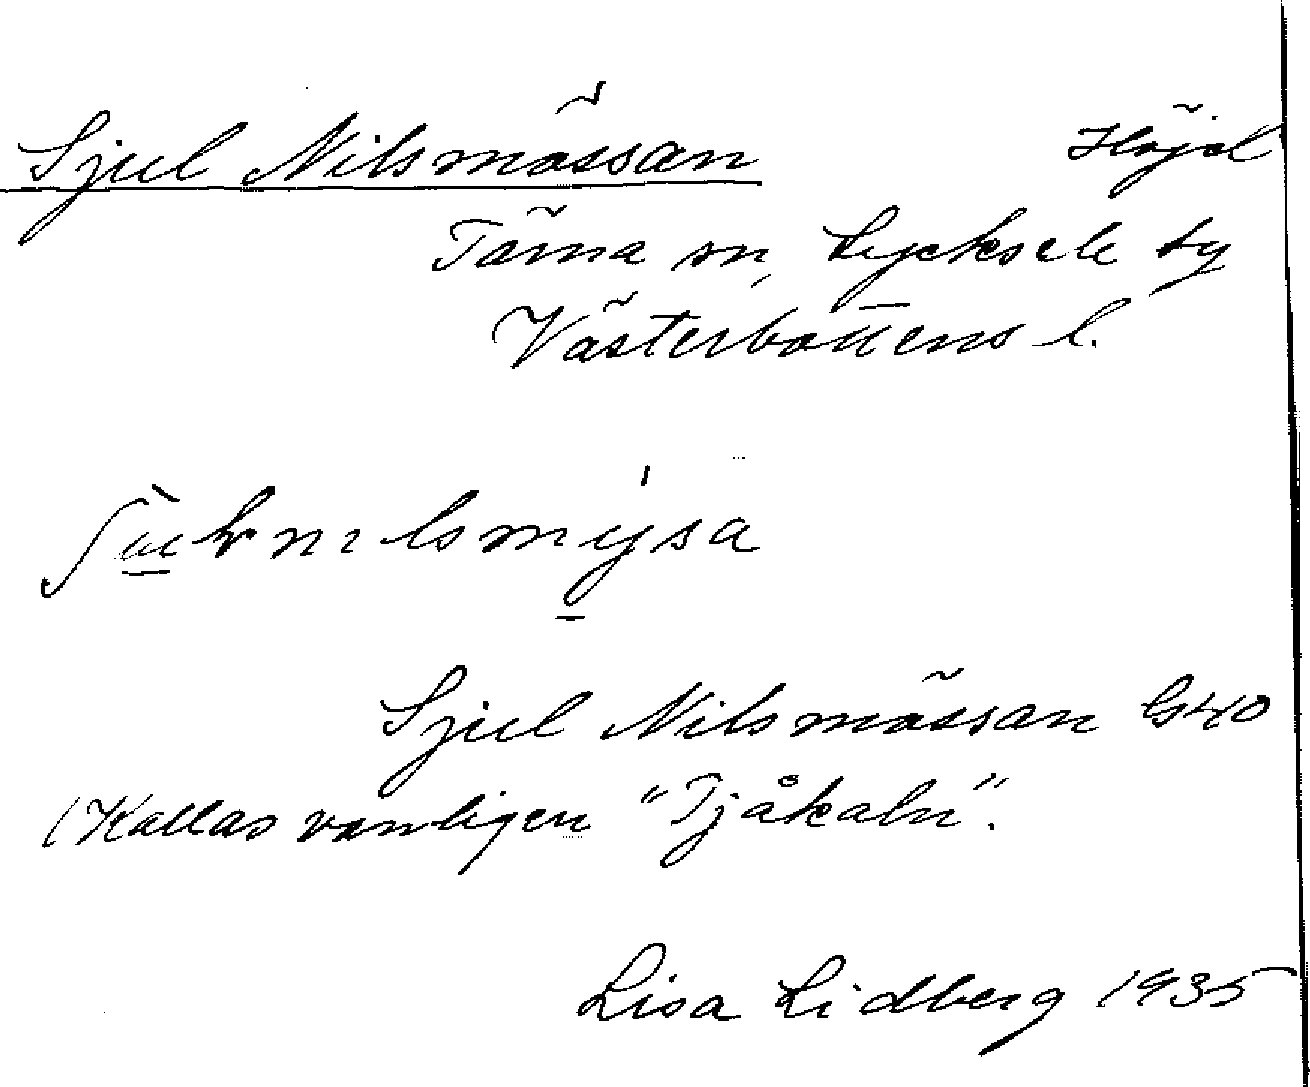 Sjul Nilsmässan Höjd
Tärna sn, Lycksele ty
Västerbottens l.
Sjul Nilsmässan G40
(Kallas vanligen "Tjåkaln".
Lisa Lidberg 1935